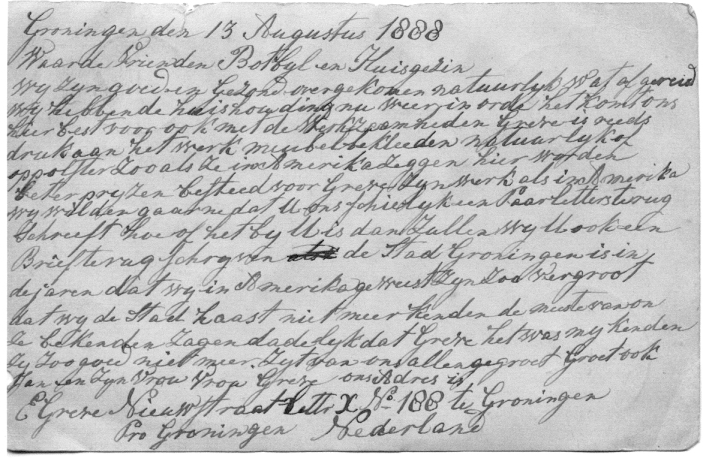 Groningen den 13 Augustus 1888
Waarde Vrienden Botbyl en Huisgezin
wy zyn goed en gezond overgekomen natuurlyk wat afgereid
wy hebben de huishouding nu weer in orde het komt ons
hier best voor ook met de Werkzaamheden Greve is reeds
druk aan het werk meubelbekleeden natuurlyk of
oppolster Zoo als Ze in Amerika Zeggen hier worden
beter pryzen betheed voor Greve Zyn werk als in Amerika
wy wilden gaarne dat U ons schielyk een Paar letters terug
Schreeft hoe of het by U is dan Zullen wy U ook een
Brief terug schryven de Stad Groningen is in
de jaren dat wy in Amerika geweest Zyn Zoo vergroot
dat wy de Stad haast niet meer kenden de meeste van on
Ze bekenden Zagen dadelyk dat Greve het was my kenden
Zy Zoo goed niet meer. Zyt van ons allen gegroet Groet ook
Jan en Zyn Vrow Vrow Greve ons Adres is
E Greve Nieuwstraat Lettr X No 188 te Groningen
Pro Groningen Nederland